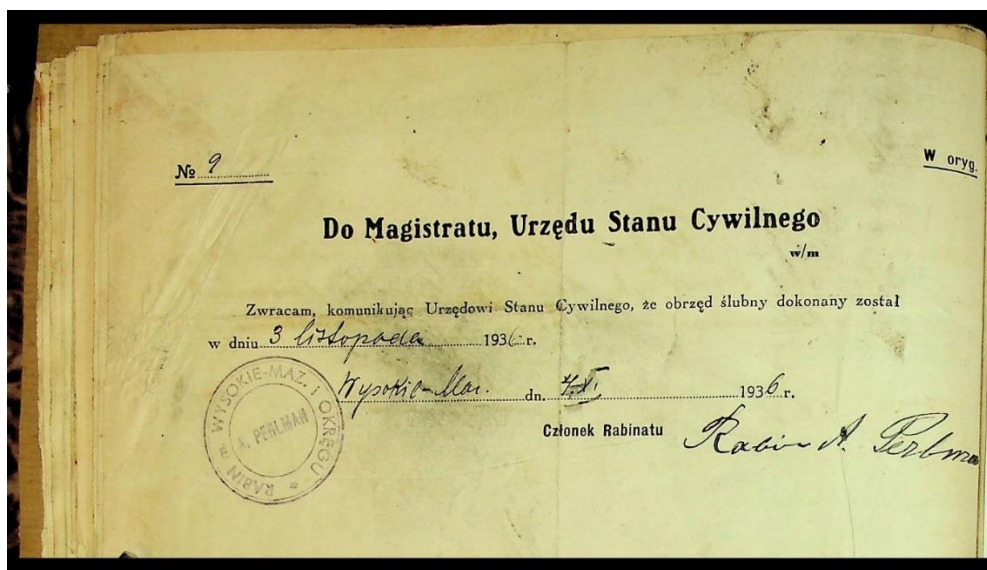 № 9
W oryg.
Do Magistratu, Urzędu Stanu Cywilnego
w/m
Zwracam, komunikując Urzędowi Stanu Cywilnego, że obrzęd ślubny dokonany został
w dniu 3 listopada 1936 r.
Wysokie-Maz. dn. 4.XI. 1936 r.
Członek Rabinatu Rabin A. Perlma
RABIN m. WYSOKIE-MAZ. I OKRĘGU
A. PERLMAN